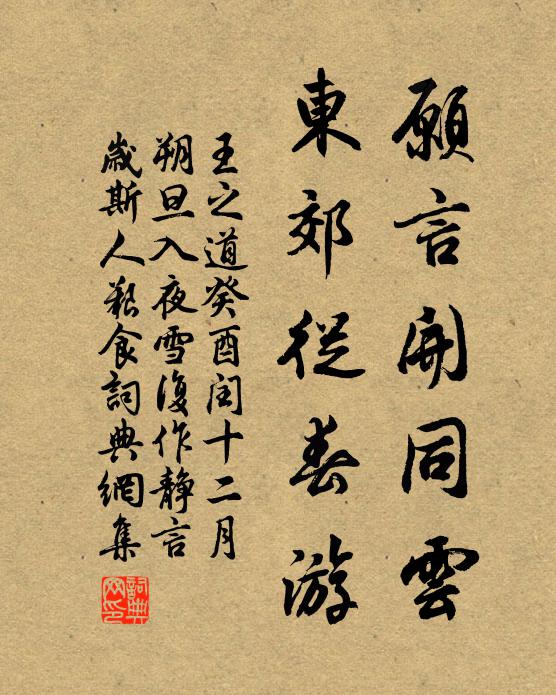 願言開同雲
東郊從春游
王之道癸酉闰十二月
朔旦入夜雪復作靜言
歲斯人艱食詞典網集
詞典
网印